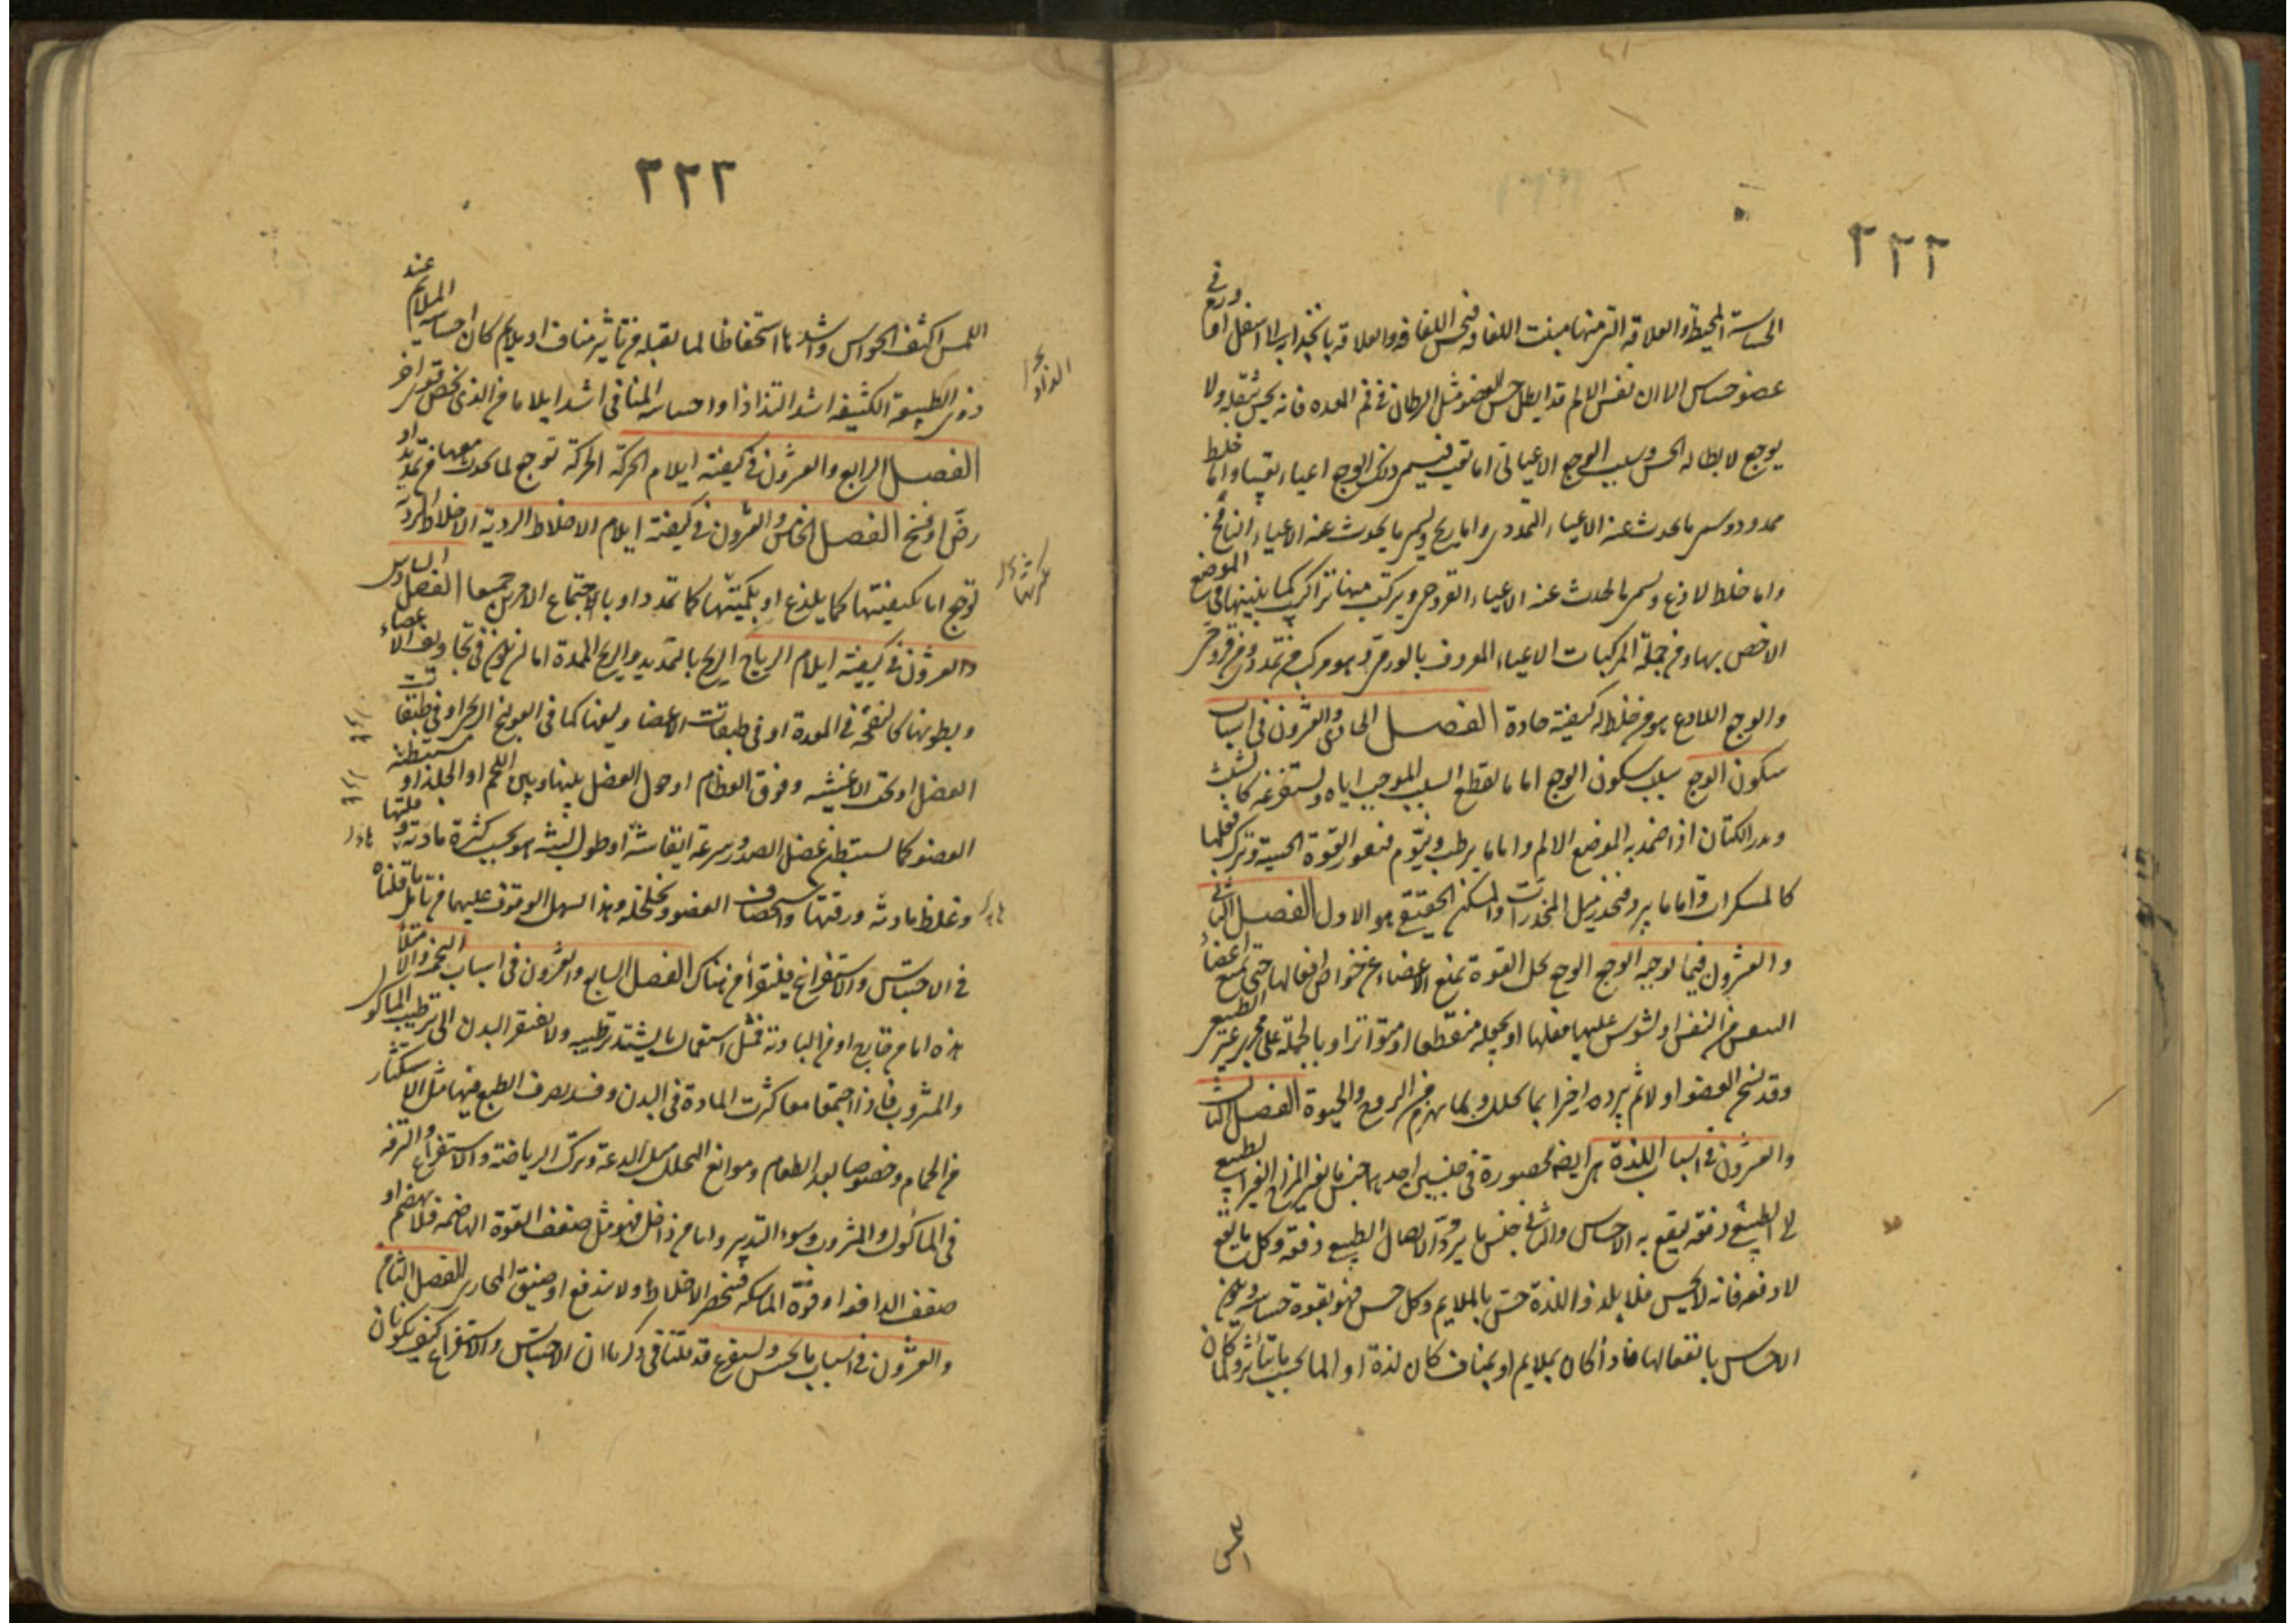 ٢٢٢
الحساسة المحيطة والعلاقة التى منها منبت اللفافة فيحس اللفافة والعلاقة بانجذابه الى اسفل اما
عضو حساس الا ان نفس الالم قد ابطل حس العضو مثل السرطان فى فم المعده فانه يحس ثقله ولا
يوجع لابطاله الحس وسبب الوجع الاعيائى اما تعب فيسمى ذلك الوجع اعياء تعبيا واما خلط
ممدد ويسمى ما يحدث عنه الاعياء التمددى واما ريح ويسمى ما يحدث عنه الاعياء النافخ
واما خلط لاذع ويسمى ما يحدث عنه الاعياء القروحى ويتركب منها تراكيب كما نبينها فى الموضع
الاخص بها ومن جملة المركبات الاعياء المعروف بالورمى وهو مركب من تمددى ومن قروحى
والوجع اللاذع هو من خلط له كيفية حادة الفصل الحادى والعشرون فى اسباب
سكون الوجع سبب سكون الوجع اما ما يقطع السبب الموجب اياه ويستفرغه كالشبث
وبزر الكتان اذا ضمد به الموضع الالم واما ما يرطب وينوّم فتغور القوة الحسية وتترك فعلها
كالمسكرات واما ما يبرد فيخدر مثل المخدرات والمسكن الحقيقى هو الاول الفصل الثانى
والعشرون فيما يوجبه الوجع الوجع يحل القوة يمنع الاعضاء عن خواص افعالها حتى يمنع اعضاء
التنفس عن النفس او يشوش عليها فعلها او يجعله متقطعا او متواترا او بالجملة على مجرى غير الطبيعى
وقد يسخن العضو اولا ثم يبرده اخيرا بما يحلل وبما يهزم من الروح والحيوة الفصل الثالث
والعشرون فى اسباب اللذة هى ايضا محصورة فى جنسين احدهما جنس ما يغير المزاج الغير الطبيعى
الى الطبيعى دفعة ليقع به الاحساس والثانى جنس ما يرد الاتصال الطبيعى دفعة وكل ما يقع
لا دفعة فانه لا يحس فلا يلذ واللذة حسّ بالملايم وكل حس فهو بقوة حساسة ويكون
الاحساس بانفعالها فاذا كان بملايم او بمناف كان لذة او الما بحسب ما يتأثر ولما كان
٢٢٣
اللمس اكثف الحواس واشدها استحفاظا لما يقبله من تأثير مناف او ملايم كان احساسه الملايم عند
ذوى الطبيعة الكثيفة اشد التذاذا واحساسه المنافى اشد ايلاما من الذى يخص قوى اخر
الفصل الرابع والعشرون فى كيفية ايلام الحركة الحركة توجع لما يحدث معها من تمديد او
رضّ او فسخ الفصل الخامس والعشرون فى كيفية ايلام الاخلاط الردية الاخلاط الردية
توجع اما بكيفيتها كما يلذع او بكميتها كما تمدد او باجتماع الامرين جميعا الفصل السادس
والعشرون فى كيفية ايلام الرياح الريح بالتمديد والريح الممددة اما فى تجاويف الاعضاء
وبطونها كالنفخة فى المعدة او فى طبقات الاعضا وليفها كما فى القولنج الريحى او فى طبقات
العضل او تحت الاغشيه وفوق العظام او حول العضل بينها وبين اللحم او الجلد او مستبطنة
العضو كما يستبطن عضل الصدر وسرعة انفشاشه او طول لبثه هو بحسب كثرة مادته وقلتها
وغلظ مادته ورقتها واستحصاف العضو وتخلخله وهذا السهل الوقوف عليها من تأمل ما قلناه
فى الاحتباس والاستفراغ فلتقرأ من هناك الفصل السابع والعشرون فى اسباب التخمه والامتلأ
هذه اما من خارج او من البادئة فمثل استعمال ما يشتد ترطيبه ولا يفتقر البدن الى ترطيب المأكول
والمشروب فاذا اجتمعا معا كثرت المادة فى البدن وفسد تصرف الطبع فيها مثل الاستكثار
من الحمام وخصوصا بعد الطعام وموانع التحلل مثل الدعة وترك الرياضة والاستفراغ والترفه
فى المأكول والمشروب وسوء التدبير واما من داخل فهو مثل ضعف القوة الهاضمه فلا يهضم او
ضعف الدافعه او قوة الماسكه فتنحصر الاخلاط ولا تندفع او ضيق المجارى الفصل الثامن
والعشرون فى اسباب ما يحتبس ويستفرغ قد قلنا ان الاحتباس والاستفراغ كيف يكونان